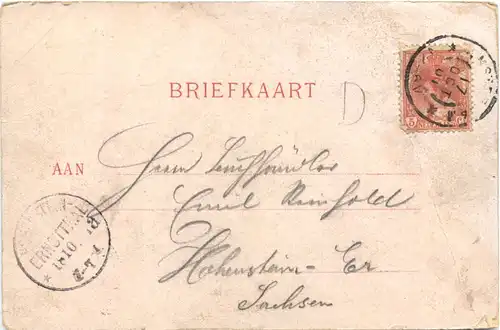 BRIEFKAART
D
AAN
Herrn Buchhändler
Emil Reinhold
Hohenstein-Er
Sachsen
ERNSTTHAL
18 10
5